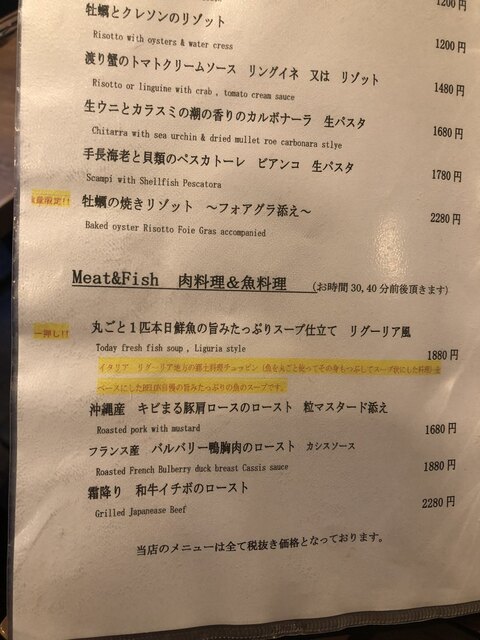 1200円
牡蠣とクレソンのリゾット
Risotto with oysters & water cress
1200円
渡り蟹のトマトクリームソース リングイネ 又は リゾット
Risotto or linguine with crab , tomato cream sauce
1480円
生ウニとカラスミの潮の香りのカルボナーラ 生パスタ
Chitarra with sea urchin & dried mullet roe carbonara stlye
1680円
手長海老と貝類のペスカトーレ ビアンコ 生パスタ
Scampi with Shellfish Pescatora
1780円
数量限定!! 牡蠣の焼きリゾット ～フォアグラ添え～
Baked oyster Risotto Foie Gras accompanied
2280円
Meat&Fish 肉料理＆魚料理 (お時間30,40分前後頂きます)
一押し!! 丸ごと1匹本日鮮魚の旨みたっぷりスープ仕立て リグーリア風
Today fresh fish soup , Liguria style
1880円
イタリア リグーリア地方の郷土料理チュッピン（魚を丸ごと使ってその身もつぶしてスープ状にした料理）を
ベースにした自慢の旨みたっぷりの魚のスープです。
沖縄産 キビまる豚肩ロースのロースト 粒マスタード添え
Roasted pork with mustard
1680円
フランス産 バルバリー鴨胸肉のロースト カシスソース
Roasted French Bulberry duck breast Cassis sauce
1880円
霜降り 和牛イチボのロースト
Grilled Japanease Beef
2280円
当店のメニューは全て税抜き価格となっております。